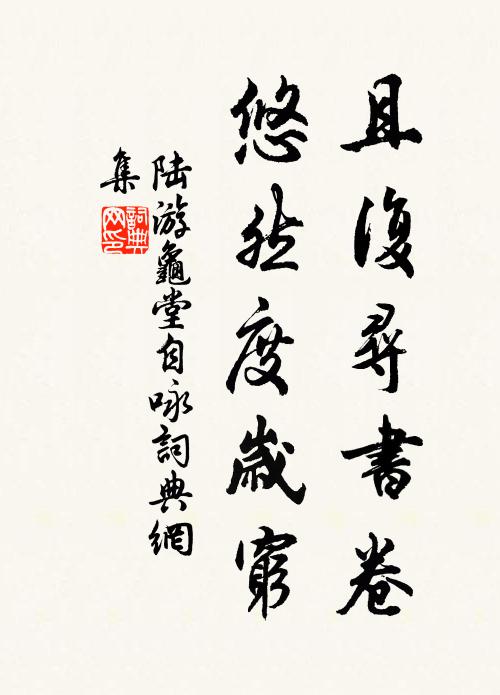 且復尋書卷
悠然度歲窮
陸游龜堂自咏詞典網
集
詞典
网印